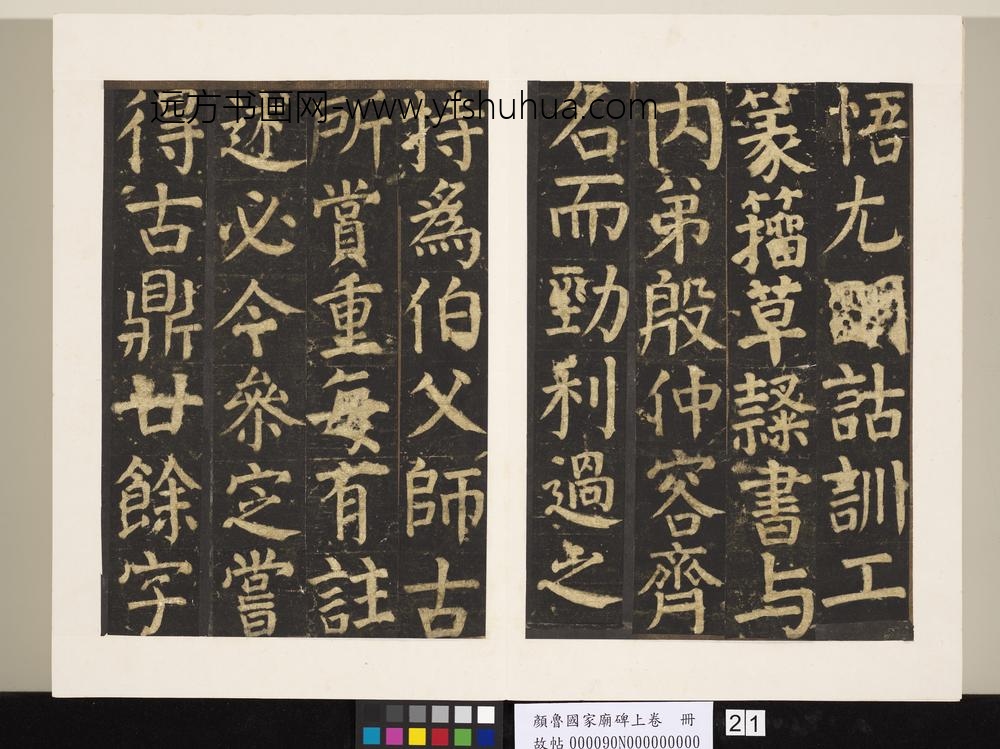 悟尢詁訓工
篆籀草隸書与
内弟殷仲容齊
名而勁利過之
特為伯父師古
所賞重每有註
述必令參定嘗
得古鼎廿餘字
远方书画网-www.yfshuhua.com
顏魯國家廟碑上卷 冊
故帖 000090N000000000
21